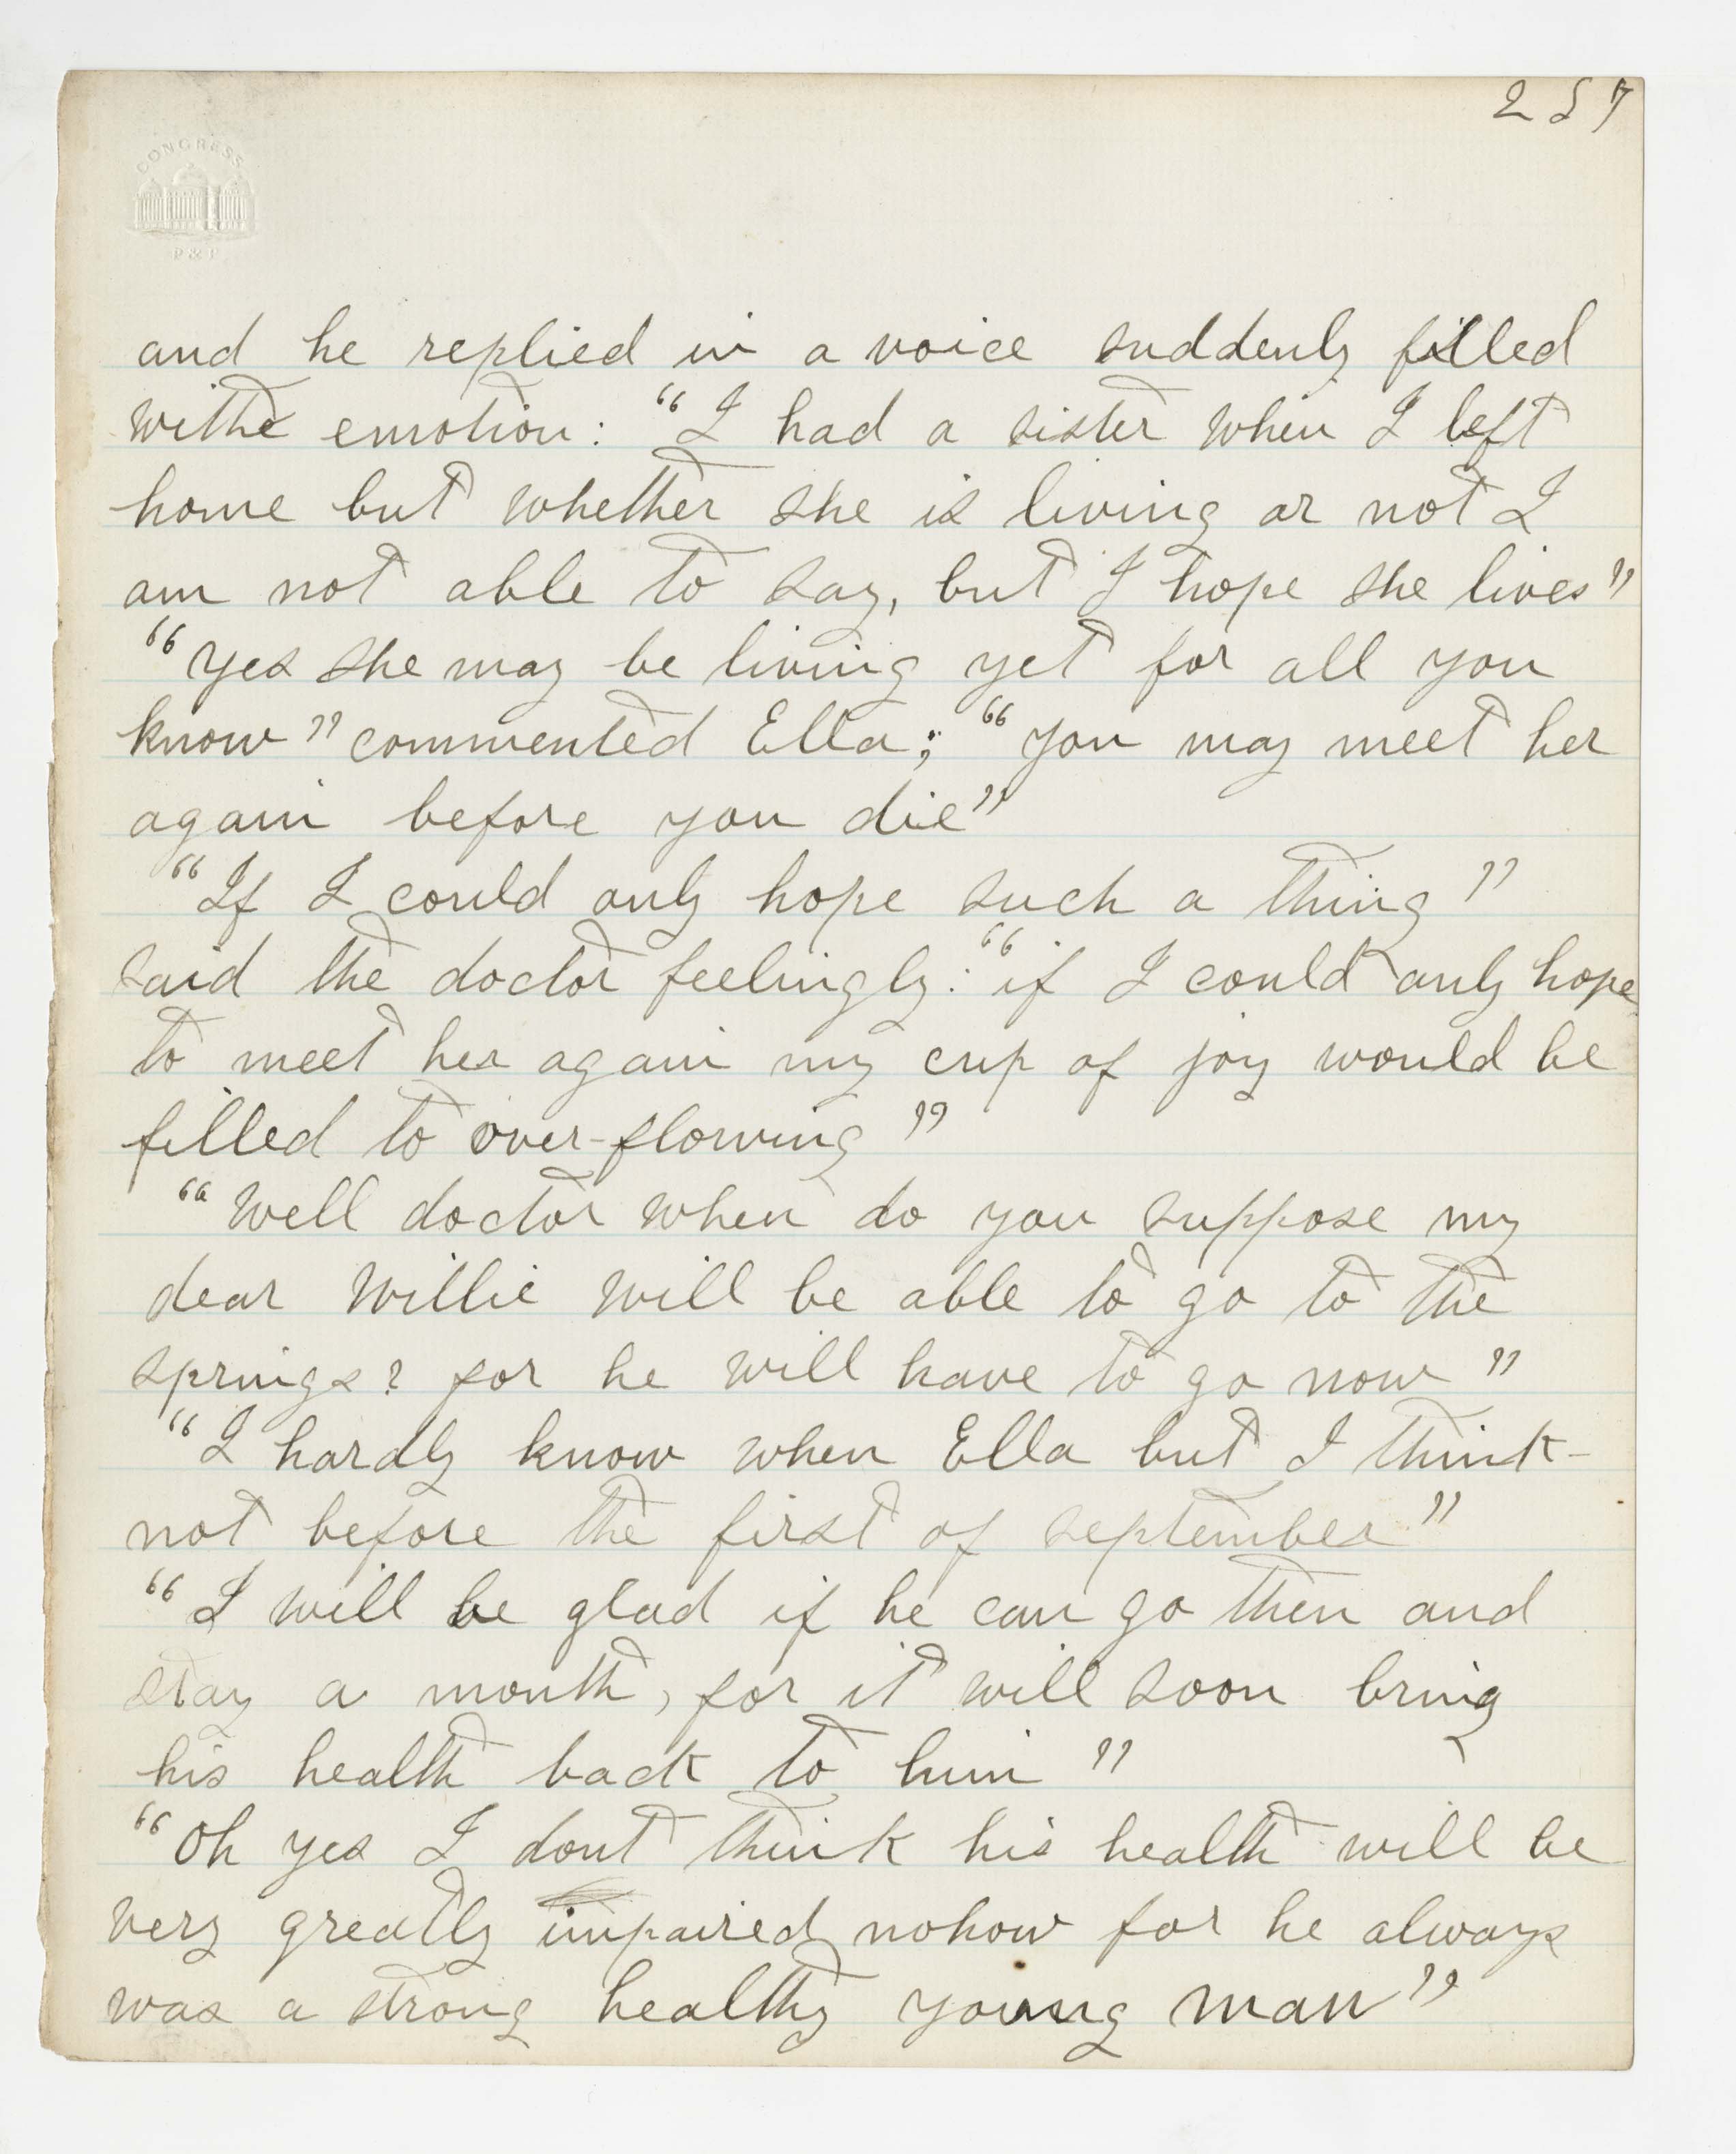 257
CONGRESS
P & P
and he replied in a voice suddenly filled
withe emotion: "I had a sister when I left
home but whether she is living or not I
am not able to say, but I hope she lives"
"Yes she may be living yet for all you
know" commented Ella; "you may meet her
again before you die"
"If I could only hope such a thing"
said the doctor feelingly: "if I could only hope
to meet her again my cup of joy would be
filled to over-flowing"
"Well doctor when do you suppose my
dear Willie will be able to go to the
springs? for he will have to go now"
"I hardly know when Ella but I think-
not before the first of september"
"I will be glad if he can go then and
stay a month, for it will soon bring
his health back to him"
"Oh yes I dont think his health will be
very greatly impaired nohow for he always
was a strong healthy young man"